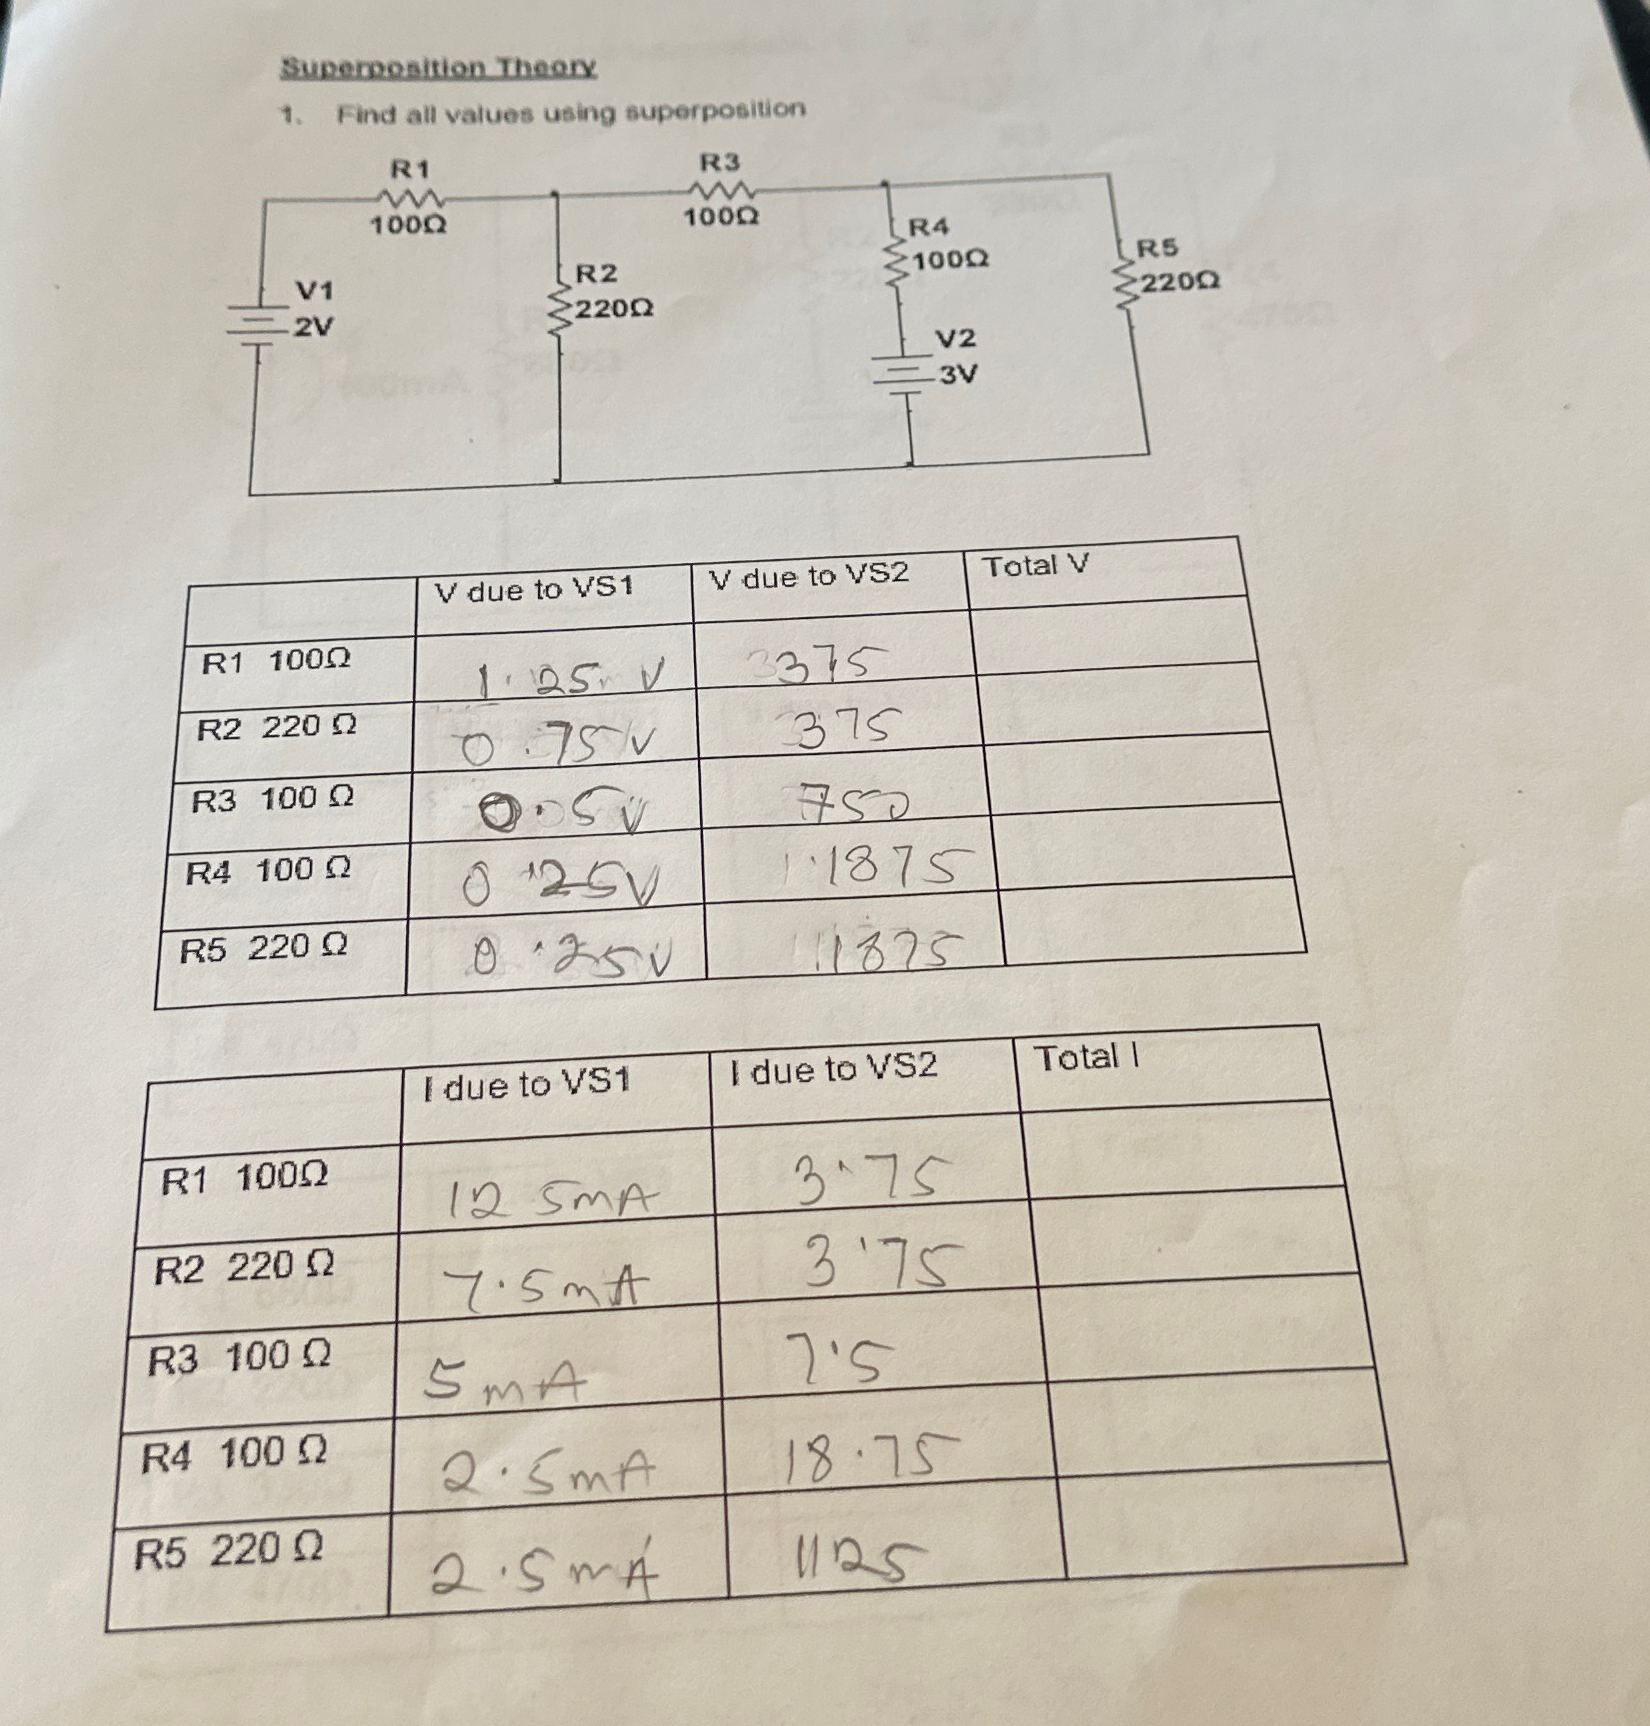 Superposition Theory
1. Find all values using superposition
R1
100Ω
R3
100Ω
R2
220Ω
R4
100Ω
R5
220Ω
V1
2V
V2
3V
V due to VS1 V due to VS2 Total V
R1 100Ω 1.25 V 3375
R2 220 Ω 0.75V 375
R3 100 Ω 0.5V 750
R4 100 Ω 0.25V 1.1875
R5 220 Ω 0.25V 11875
I due to VS1 I due to VS2 Total I
R1 100Ω 12 5mA 3.75
R2 220 Ω 7.5mA 3.75
R3 100 Ω 5mA 7.5
R4 100 Ω 2.5mA 18.75
R5 220 Ω 2.5mA 1125